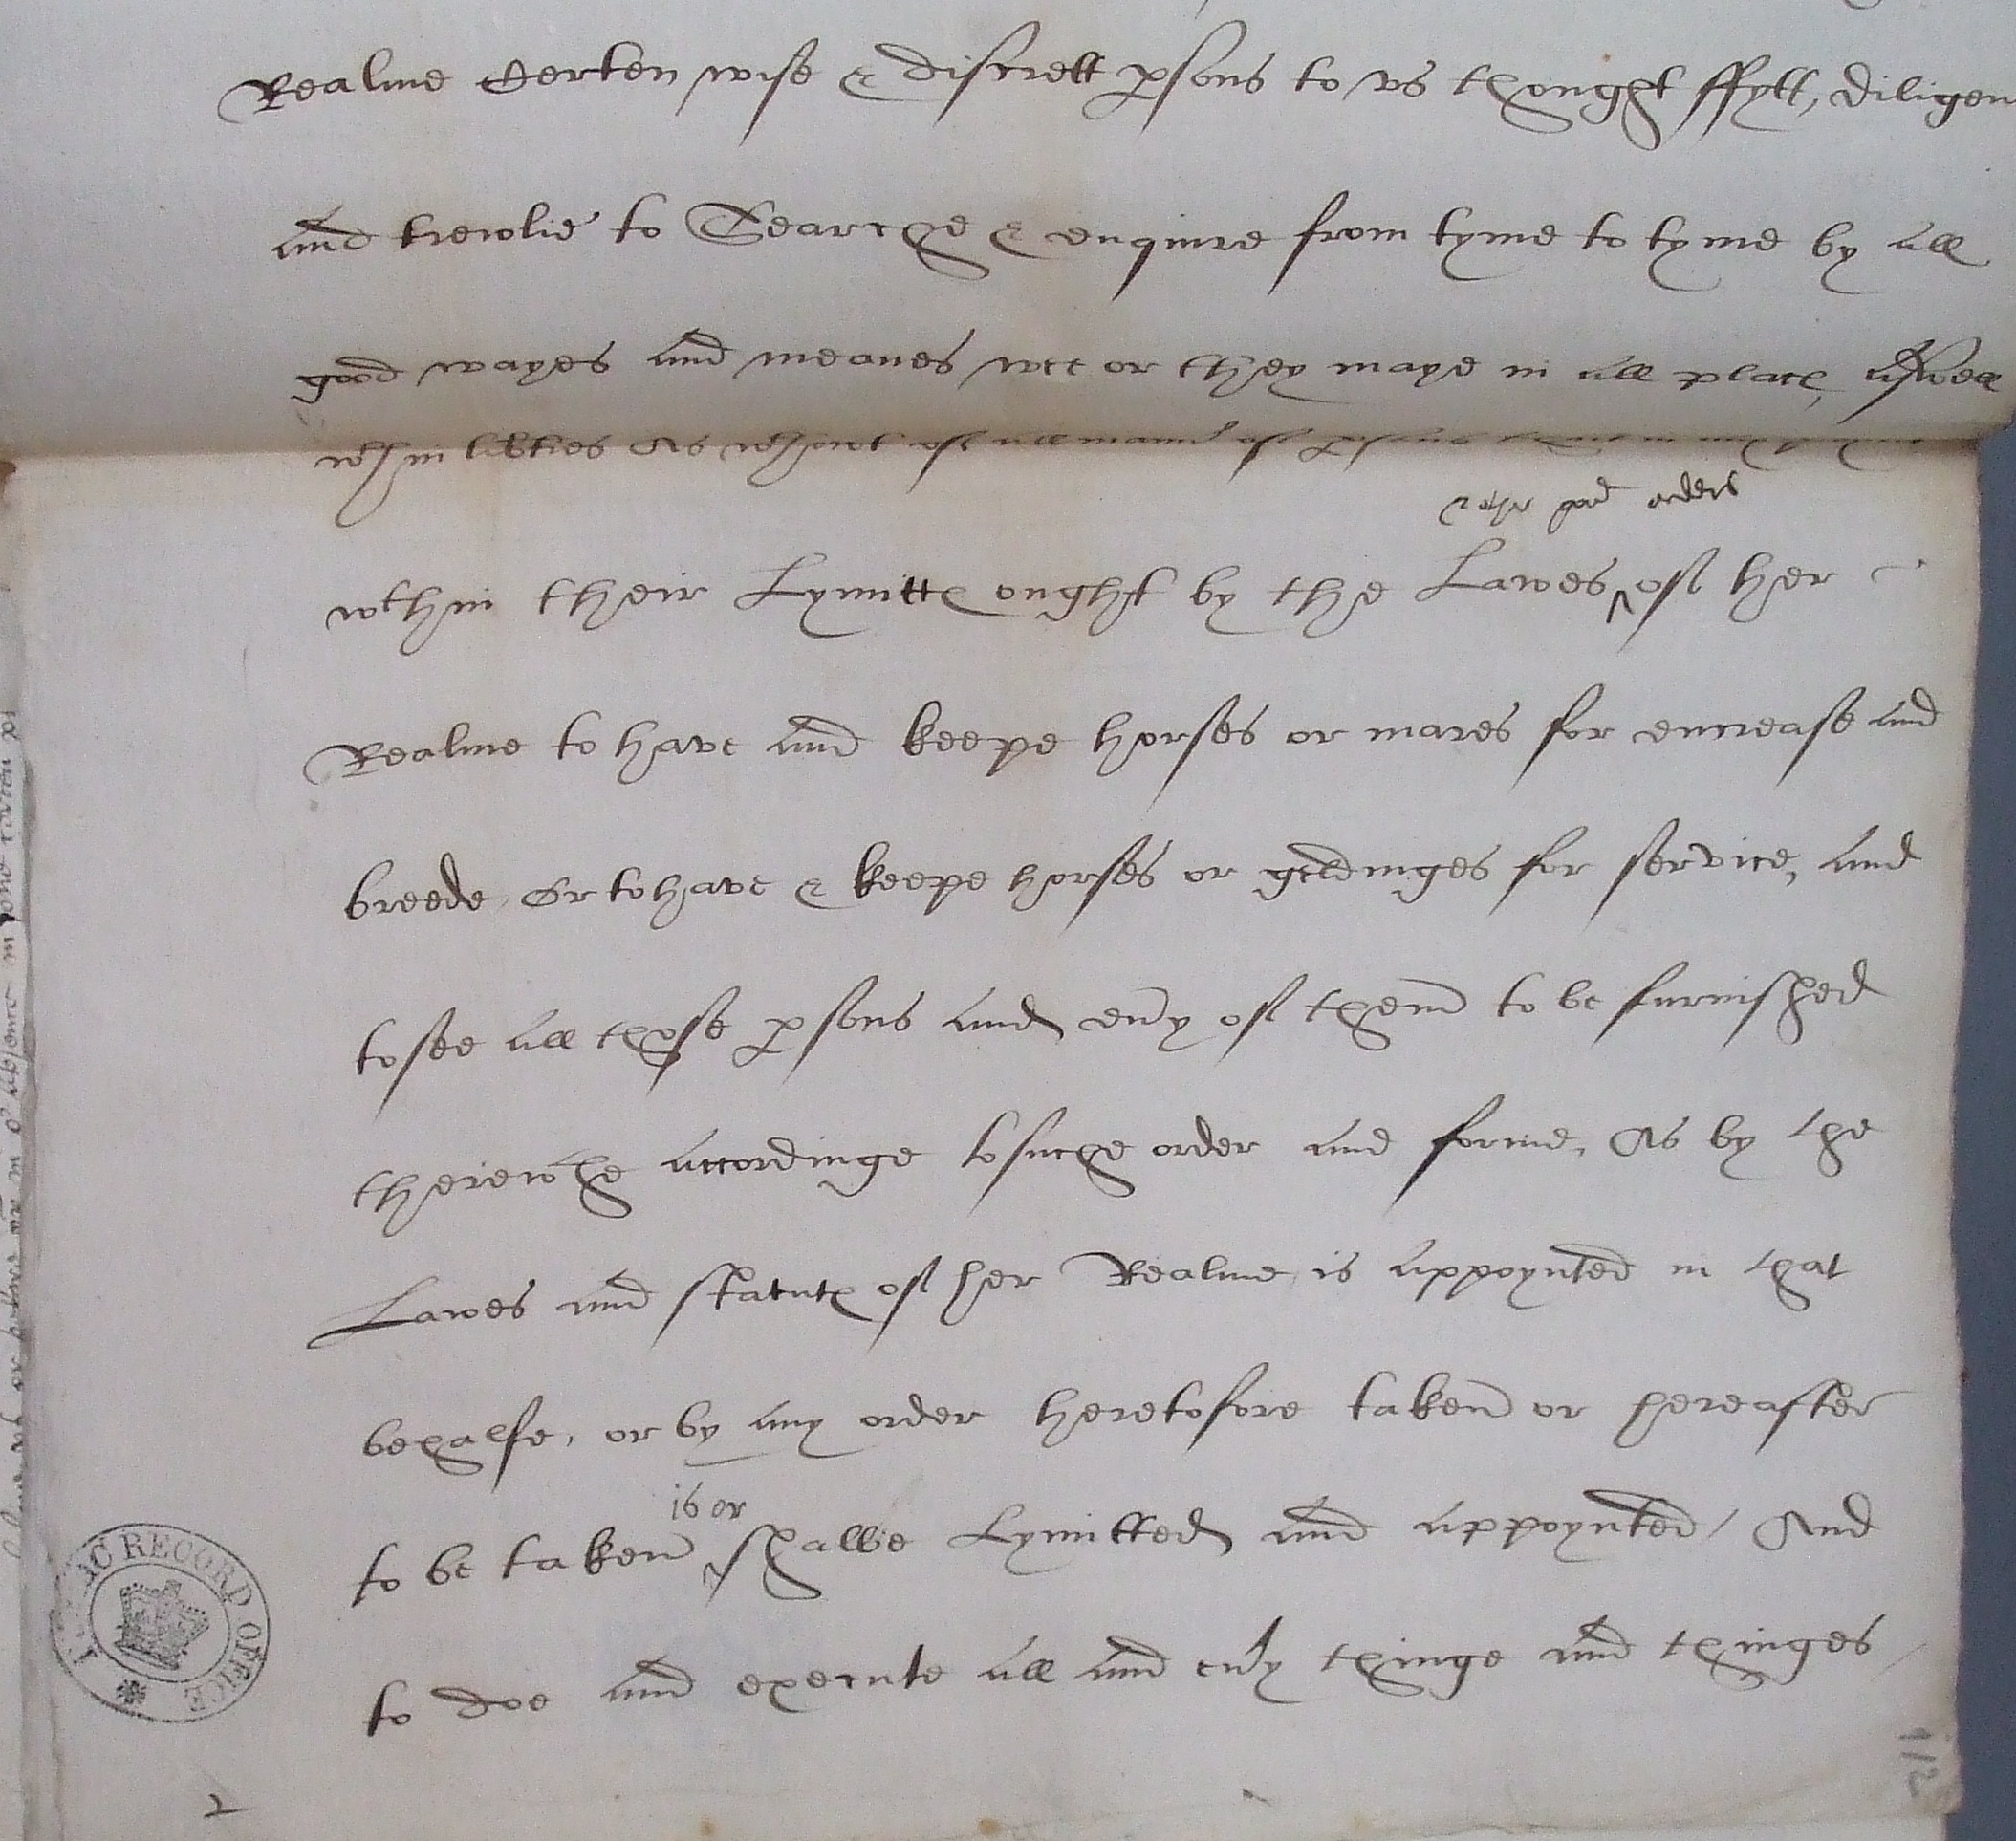 Realme Certen wise & discrett psons to vs thought ffytt, diligen
and trewlie to Searche & enquire from tyme to tyme by all
good wayes and meanes wee or they maye in all plac, aswell
wthin libties As wthout of all mann of psons
& other good orders
wthin their Lymitt ought by the Lawes of her
Realme to have and keepe horses or mares for encrease and
breede, Or to have & keepe horses or geldinges for service, and
to see all those psons and eny of them to be furnished
therewthe accordinge to suche order and forme, As by the
Lawes and statut of her Realme is appoynted in that
behalfe, or by any order heretofore taken or hereafter
is or
to be taken shalbe Lymitted and appoynted / And
to doe and execute all and eny thinge and thinges
PUBLIC RECORD OFFICE
2
112